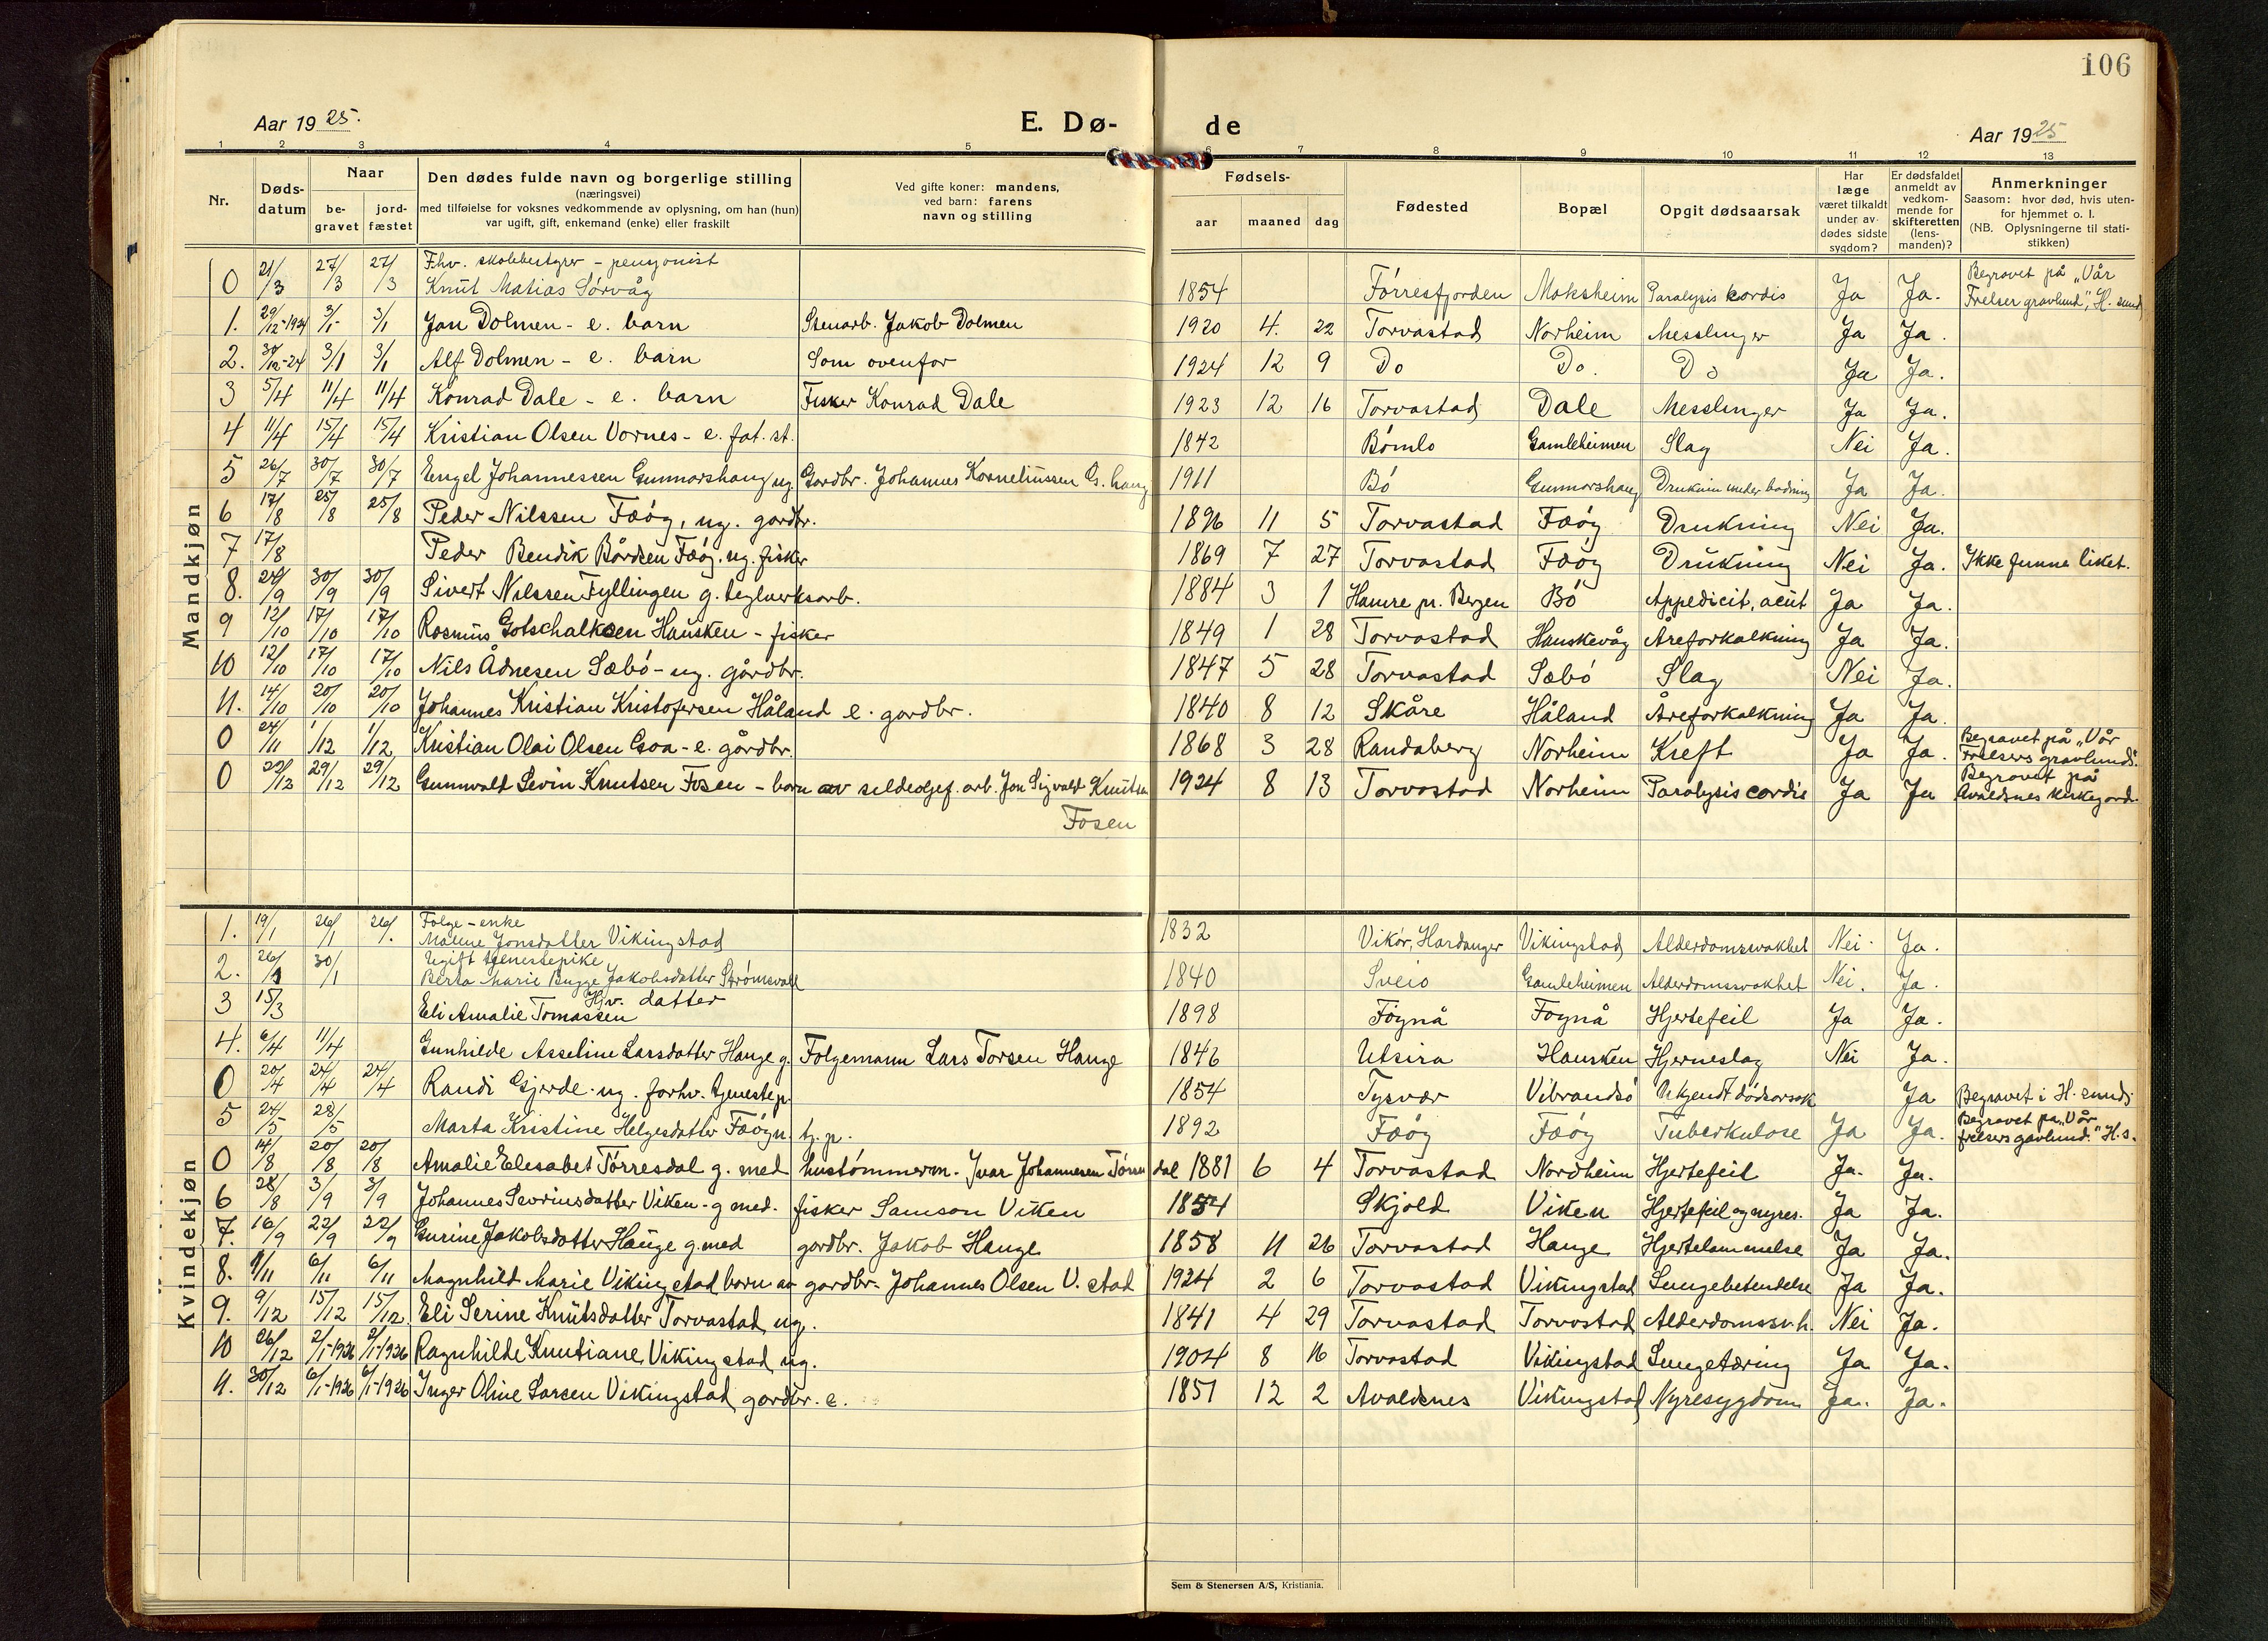 106
Aar 1925.
E. Dø-
de
Aar 1925
1 2 3 4 5 6 7 8 9 10 11 12 13
Nr. Døds-datum Naar be-gravet jord-fæstet Den dødes fulde navn og borgerlige stilling (næringsvei) med tilføielse for voksnes vedkommende av oplysning, om han (hun) var ugift, gift, enkemand (enke) eller fraskilt Ved gifte koner: mandens, ved barn: farens navn og stilling Fødsels- aar maaned dag Fødested Bopæl Opgit dødsaarsak Har læge været tilkaldt under av-dødes sidste sygdom? Er dødsfaldet anmeldt av vedkom-mende for skifteretten (lens-manden)? Anmerkninger Saasom: hvor død, hvis uten-for hjemmet o. l. (NB. Oplysningerne til stati-stikken)
Mandkjøn
0 21/3 27/3 27/3 F.hv. skolebestyrer - pensjonist Knut Matias Sørvåg 1854 Førresfjorden Moksheim Paralysis cordis Ja Ja. Begravet på "Vår Frelser gravlund", H. sund
1. 29/12-1924 3/1 3/1 Jan Dolmen - e. barn Stenarb. Jakob Dolmen 1920 4. 22 Torvastad Norheim Messlinger Ja Ja.
2. 30/12-24 3/1 3/1 Alf Dolmen - e. barn Som ovenfor 1924 12 9 Do Do. Do Ja Ja.
3 5/4 11/4 11/4 Konrad Dale - e. barn Fisker Konrad Dale 1923 12 16 Torvastad Dale Messlinger Ja Ja.
4 11/4 15/4 15/4 Kristian Olsen Vornes - e. fat. st. 1842 Bømlo Gamleheimen Slag Nei Ja.
5 26/7 30/7 30/7 Engel Johannessen Gunnarshaug ug. Gardbr. Johannes Korneliussen G. haug 1911 Bø Gunnarshaug Drukning under badning Ja Ja.
6 17/8 25/8 25/8 Peder Nilssen Fæøy, ug. gardbr. 1896 11 5 Torvastad Fæøy Drukning Nei Ja.
7 17/8 Peder Bendik Bårdsen Fæøy. ug. fisker 1869 7 27 Torvastad Fæøy Drukning Nei Ja. Ikke funne liket.
8. 24/9 30/9 30/9 Sivert Nilssen Fyllingen g. teglverksarb. 1884 3 1 Hamre pr. Bergen Bø Appedicit, acut Ja Ja.
9 12/10 17/10 17/10 Rasmus Gotschalksen Hausken - fisker 1849 1 28 Torvastad Hauskevåg Åreforkalkning Ja Ja.
10 12/10 17/10 17/10 Nils Ådnesen Sæbø - ug. gårdbr. 1847 5 28 Torvastad Sæbø Slag Nei Ja.
11. 14/10 20/10 20/10 Johannes Kristian Kristofersen Håland e. gardbr. 1840 8 12 Skåre Håland Åreforkalkning Ja Ja.
0 24/11 1/12 1/12 Kristian Olai Olsen Goa - e. gårdbr. 1868 3 28 Randaberg Norheim Kreft Ja Ja. Begravet på "Vår Frelsers gravlund".
0 22/12 29/12 29/12 Gunnvald Sevin Knutsen Fosen - barn av sildoljef. arb. Jon Sigvald Knutsen Fosen 1924 8 13 Torvastad Norheim Paralysis cordis Ja Ja Begravet på Avaldsnes kirkegard.
Kvindekjøn
1. 19/1 26/1 26/1. Følge - enke Malene Jonsdatter Vikingstad 1832 Vikør, Hardanger Vikingstad Alderdomsvakhet Nei. Ja.
2. 26/1 30/1 Ugift tjenestepike Berta Marie Bugge Jakobsdatter Strømsvold 1840 Sveio Gamleheimen Alderdomssvakhet Nei. Ja.
3 15/3 Hjv. datter Eli Amalie Tomassen 1898 Føynå Føynå Hjertefeil Ja Ja.
4. 6/4 11/4 Gunhilde Asseline Larsdatter Hauge g. Følgemann Lars Torsen Hauge 1846 Utsira Hausken Hjerneslag Nei Ja.
0 20/4 24/4 24/4 Randi Gjerde - ug. forhv. tjenestep. 1854 Tysvær Vibrandsø Ukjendt dødsorsak Ja Begravet i H. sund.
5 24/5 28/5 Marta Kristine Helgesdatter Fæøy u. tj. p. 1892 Fæøy Fæøy Tuberkulose Ja Ja. Begravet på "Vår frelsers gavlund." H.s.
0 14/8 20/8 20/8 Amalie Elisabet Tørresdal g. med hustømmerm. Ivar Johannesen Tørresdal 1881 6 4 Torvastad Nordheim Hjertefeil Ja. Ja.
6 28/8 3/9 3/9 Johannes Sevrinsdatter Viken - g med. fisker Samson Viken 1854 Skjold Viken Hjertefeil og nyres. Ja Ja.
7. 16/9 22/9 22/9 Gurine Jakobsdatter Hauge g. med gardbr. Jakob Hauge 1858 11 26 Torvastad Hauge Hjertelammelse Ja Ja.
8. 1/11 6/11 6/11 Magnhild Marie Vikingstad barn av gardbr. Johannes Olsen V. stad 1924 2 6 Torvastad Vikingstad Lungebetendelse Ja Ja.
9. 9/12 15/12 15/12. Eli Serine Knutsdatter Torvastad ug. 1841 4 29 Torvastad Torvastad Alderdomssv.h. Nei Ja.
10 26/12 2/1-1926 2/1-1926 Ragnhilde Knutiane Vikingstad ug. 1904 8 16 Torvastad Vikingstad Lungetæring Ja Ja.
11. 30/12 6/1-1926 6/1-1926 Inger Oline Larsen Vikingstad gardbr. e. 1851 12 2 Avaldsnes Vikingstad Nyresygdom Ja. Ja.
Sem & Stenersen A/S, Kristiania.